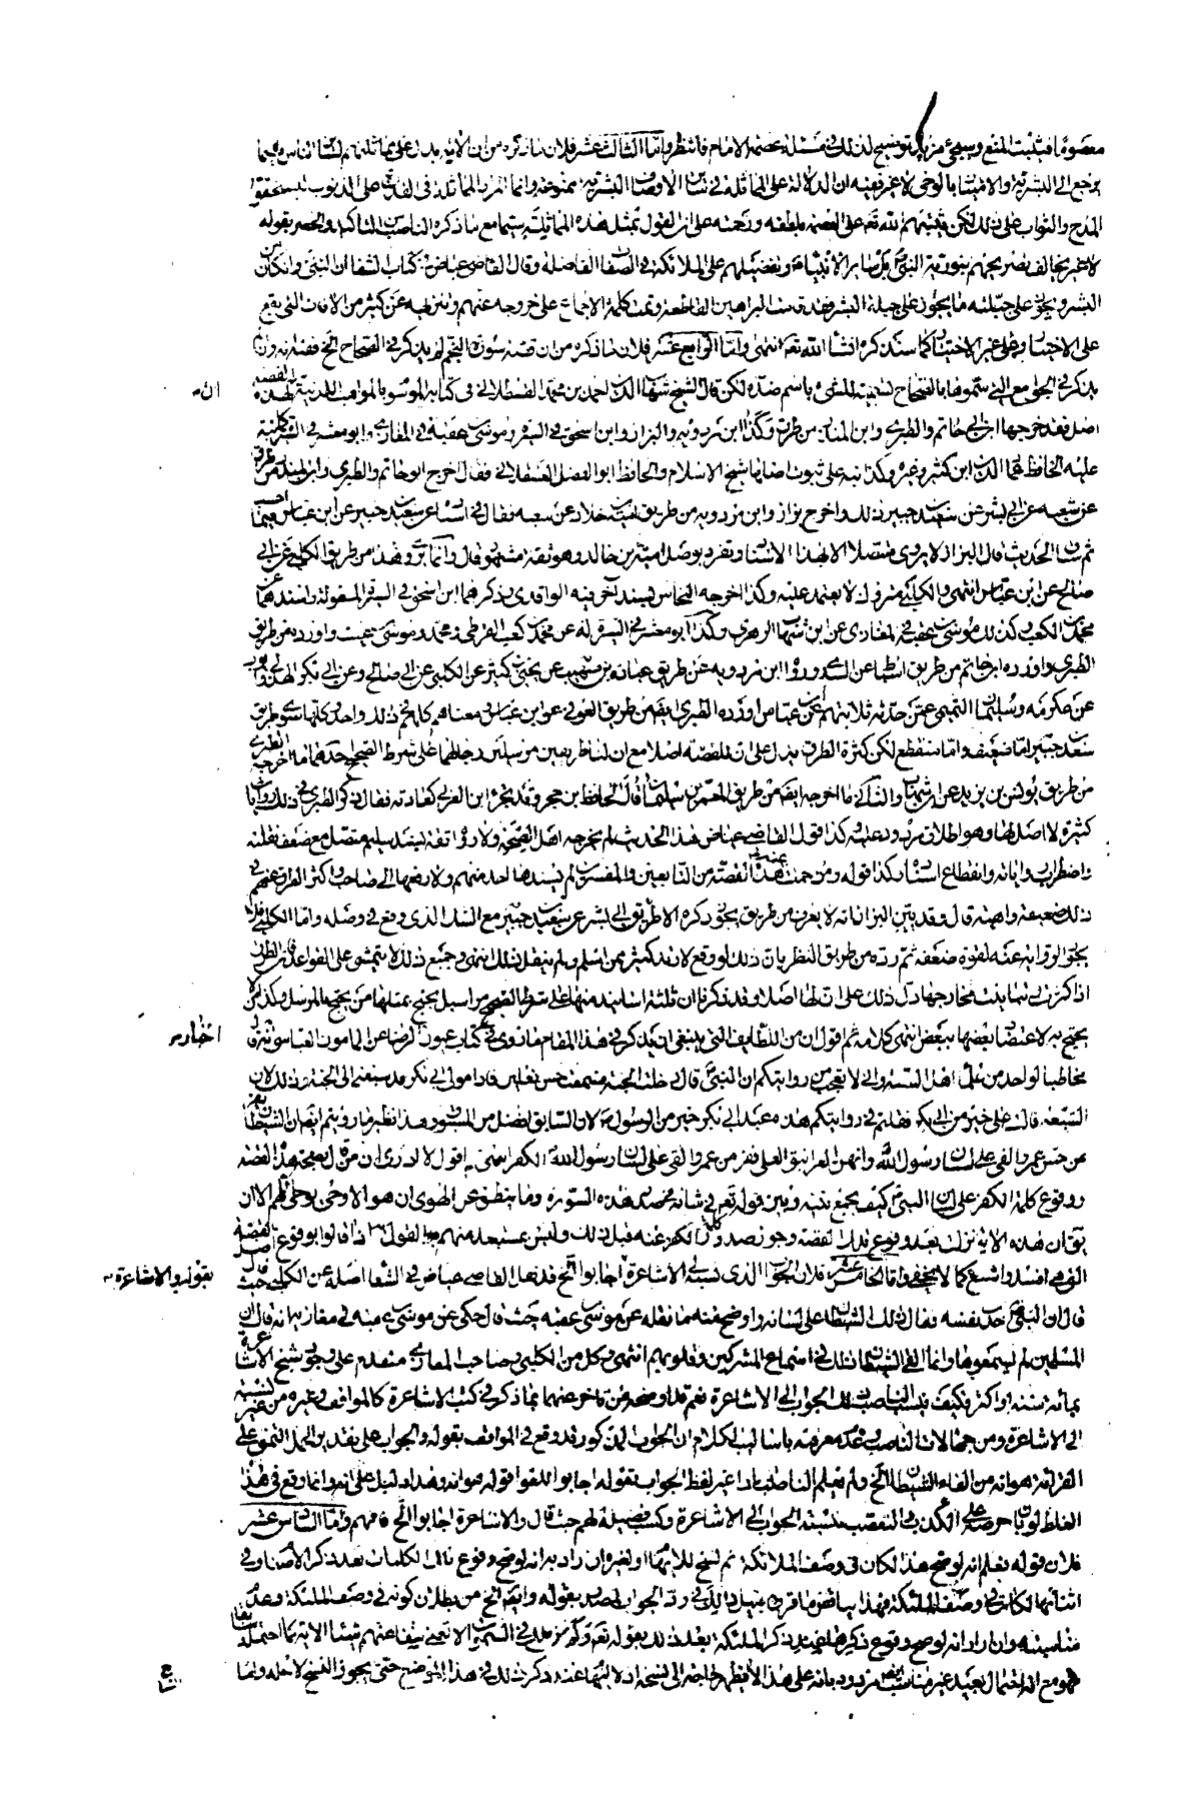 معصوما فيثبت المنع وسيجئ مزيد توضيح لذلك في مسئلة عصمة الامام فانتظر واما الثالث عشر فلان ما ذكره من ان الآية يدل على مماثلتهم لسائر الناس فيما
يرجع الى البشرية والامتياز بالوحى لا غير ففيه ان الدلالة على المماثلة في سائر الاوصاف البشرية ممنوعة وانما المراد المماثلة في القدرة على الذنوب ليستحقوا
المدح والثواب على ذلك لكن يثبتهم الله تع على العصمة بلطفه ورحمته على ان القول بمثل هذه المماثلة سيما مع ما ذكره الناصب من التاكيد والحصر بقوله
لا غير يخالف تصريحهم بنورية النبي بل سائر الانبياء وتفضيلهم على الملائكة في الصفات الفاضلة وقال القاضى عياض في كتاب الشفا ان النبي وان كان من
البشر ويجوز على جبلته ما يجوز على جبلة البشر فقد قامت البراهين القاطعة وتمت كلمة الاجماع على خروجه عنهم وتنزيهه عن كثير من الآفات التي تقع
على الاختيار وعلى غير الاختيار كما سنذكره انشاء الله تع انتهى واما الرابع عشر فلان ما ذكره من ان قصة سورة النجم لم يذكر في الصحاح الخ ففيه انه وان لم
يذكر في الجوامع التي سموها بالصحاح تسمية للشئ باسم ضده لكن قال الشيخ شهاب الدين احمد بن محمد القسطلاني في كتابه الموسوم بالمواهب اللدنية لهذه القصة
اصل فقد خرجها ابن ابي حاتم والطبري وابن المنذر من طرق وكذا ابن مردويه والبزاز وابن اسحق في السيرة وموسى بن عقبة في المغازي وابو معشر في السيرة كما نبه
عليه الحافظ عماد الدين ابن كثير وغيره وكذا نبه على ثبوت اصلها شيخ الاسلام والحافظ ابو الفضل العسقلاني فقال اخرج ابن ابي حاتم والطبري وابن المنذر من طرق
عن شعبة عن ابي بشر عن سعيد بن جبير ذلك واخرج بزاز وابن مردويه من طريق امية بن خالد عن شعبة فقال في اسناده عن سعيد بن جبير عن ابن عباس فيما احسب
ثم ساق الحديث قال البزاز لا يروى متصلا الا بهذا الاسناد وتفرد بوصله امية بن خالد وهو ثقة مشهور قال وانما يروى هذا من طريق الكلبي عن ابي
صالح عن ابن عباس انتهى والكلبي متروك لا يعتمد عليه وكذا اخرجه النحاس بسند آخر فيه الواقدي وذكرها ابن اسحق في السيرة المنقولة واسندها عن
محمد بن كعب وكذلك موسى بن عقبة في المغازي عن ابن شهاب الزهري وكذا ابو معشر في السيرة له عن محمد بن كعب القرظي ومحمد بن قيس واورده من طريق
الطبري واورده ابن ابي حاتم من طريق اسباط عن السدي ورواه ابن مردويه عن طريق عباد بن صهيب عن يحيى بن كثير عن الكلبي عن ابي صالح وعن ابي بكر الهذلي وايوب
عن عكرمة وسليمان التيمي عمن حدثه ثلاثتهم عن ابن عباس اورده الطبري ايضا من طريق العوفي عن ابن عباس ومعناهم كلهم في ذلك واحد وكلها سوى طريق
سعيد بن جبير اما ضعيف واما منقطع لكن كثرة الطرق يدل على ان للقصة اصلا مع ان لنا طريقين مرسلين رجالهما على شرط الصحيح احدهما ما اخرجه الطبري
من طريق يونس بن يزيد عن ابن شهاب والثاني ما اخرجه ايضا من طريق المعتمر بن سليمان قال الحافظ بن حجر وقد تجرء ابن العربي كعادته فقال ذكر الطبري في ذلك روايات
كثيرة لا اصل لها وهو اطلاق مردود عليه وكذا قول القاضى عياض هذا الحديث لم يخرجه اهل الصحة ولا رواه ثقة بسند سليم متصل مع ضعف نقلته
واضطراب رواياته وانقطاع اسناده وكذا قوله ومن حملت عنه هذه القصة من التابعين والمفسرين لم يسندها احد منهم ولا رفعها الى صاحب واكثر الطرق عنهم في
ذلك ضعيفة واهية قال وقد بين البزاز انه لا يعرف من طريق يجوز ذكره الا طريق ابي بشر عن سعيد بن جبير مع الشك الذي وقع في وصله واما الكلبي فلا
يجوز الرواية عنه لقوة ضعفه ثم رده من طريق النظر بان ذلك لو وقع لارتد كثير ممن اسلم ولم ينقل ذلك انتهى وجميع ذلك لا يتمشى على القواعد فان الطرق
اذا كثرت وتباينت مخارجها دل ذلك على ان لها اصلا وقد ذكرنا ان ثلثة اسانيد منها على شرط الصحيح مراسيل يحتج بمثلها من يحتج بالمرسل وكذا من لا
يحتج به لاعتضاد بعضها ببعض انتهى كلامه ثم اقول ان من اللطايف التي ينبغي ان يذكر في هذا المقام ما روى في كتاب عيون اخبار الرضا عن المامون العباسي انه قال
مخاطبا لواحد من علماء اهل السنة واني لاعجب من روايتكم ان النبي قال دخلت الجنة فسمعت خفق نعلين فاذا مولى ابي بكر قد سبقني الى الجنة وذلك لان
الشيعة قالت على خير من ابي بكر فقلتم في روايتكم هذه عبد ابي بكر خير من الرسول لان السابق افضل من المسبوق وهذا نظير ما رويتم ايضا ان الشيطان يفر
من حس عمر والقى على لسان رسول الله وانهن الغرانيق العلى ففر من عمر والقى على لسان رسول الله الكفر انتهى اقول لا ادرى ان من قال بصحة هذه القصة
ووقوع كلمة الكفر على لسان النبي كيف يجمع بينه وبين قوله تع في شانه بخصوص هذه السورة وما ينطق عن الهوى ان هو الا وحى يوحى اللهم الا ان
يق ان هذه الآية نزلت بعد وقوع تلك القصة وجوز صدور كلمة الكفر عنه قبل ذلك وليس بمستبعد منهم القول بذلك اذ قالوا بوقوع القصة
التي هي افسد واشنع كما لا يخفى واما الخامس عشر فلان الجواب الذي نسبه الى الاشاعرة بقوله والاشاعرة اجابوا الخ قد نقله القاضى عياض في الشفا اصله عن الكلبي حيث قال
قال ان النبي حدث نفسه فقال ذلك الشيطان على لسانه واوضح منه ما نقله عن موسى بن عقبة حيث قال حكى عن موسى بن عقبة في مغازيه انه قال ان
المسلمين لم يسمعوها وانما القى الشيطان ذلك في اسماع المشركين وقلوبهم انتهى وكل من الكلبي وصاحب المغازي متقدم على وجود شيخ الاشاعرة
بمائة سنة او اكثر فكيف ينسب الناصب ذلك الجواب الى الاشاعرة نعم قد اوضحه من تاخر عنهما بما ذكر في كتب الاشاعرة كالمواقف وغيره من غير نسبته
الى الاشاعرة ومن جهالات الناصب وعدم معرفته باساليب الكلام ان الجواب المذكور قد وقع في المواقف بقوله والجواب على تقدير حمل التمني على
القرائة هو انه من القاء الشيطان الخ ولم يعلم الناصب اذا غير لفظ الجواب بقوله اجابوا لغوا قوله هو انه وهذا دليل على انه انما وقع في هذا
الغلط لوفور حرصه على الكذب في التعصب بنسبة الجواب الى الاشاعرة وكسب فضيلة لهم حيث قال والاشاعرة اجابوا الخ فافهم واما السادس عشر
فلان قوله نعلم انه لو صح هذا لكان في وصف الملائكة ثم نسخ للايهام او لغيره ان اراد به انه لو صح وقوع تلك الكلمات بعد ذكر الاصنام وفي
اثنائها لكانت في وصف الملائكة فهذا يناقض ما قرره قبيل ذلك في رد الجواب المصدر بقوله وايضا الخ من بطلان كونه في وصف الملائكة وعدم
مناسبته وان اراد انه لو صح وقوع ذكرها عند ذكر الملائكة بعد ذلك بقوله تع وكم من ملك في السموات لا تغنى شفاعتهم شيئا الآية كما احتمله بعضا
فهو مع انه احتمال بعيد غير مناسب مردود بانه على هذا لا يظهر حاجة الى نسخه اذ لا ايهام عند ذكر ذلك في هذا الموضع حتى يجوز النسخ لاجله ولما
ان لم
اخبار
بقوله والاشاعرة